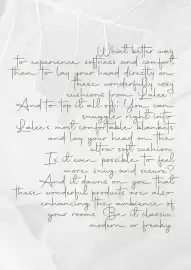 What better way
to experience softness and comfort
than to lay your head directly on
these wonderfully cosy
cushions from Lalee?
And to top it all off: You can
snuggle right into
Lalee's most comfortable blankets
and lay your head on the
ultra soft cushion.
Is it even possible to feel
more snug and secure?
And it dawns on you that
these wonderful products are also
enhancing the ambience of
your rooms. Be it classic,
modern or freaky.